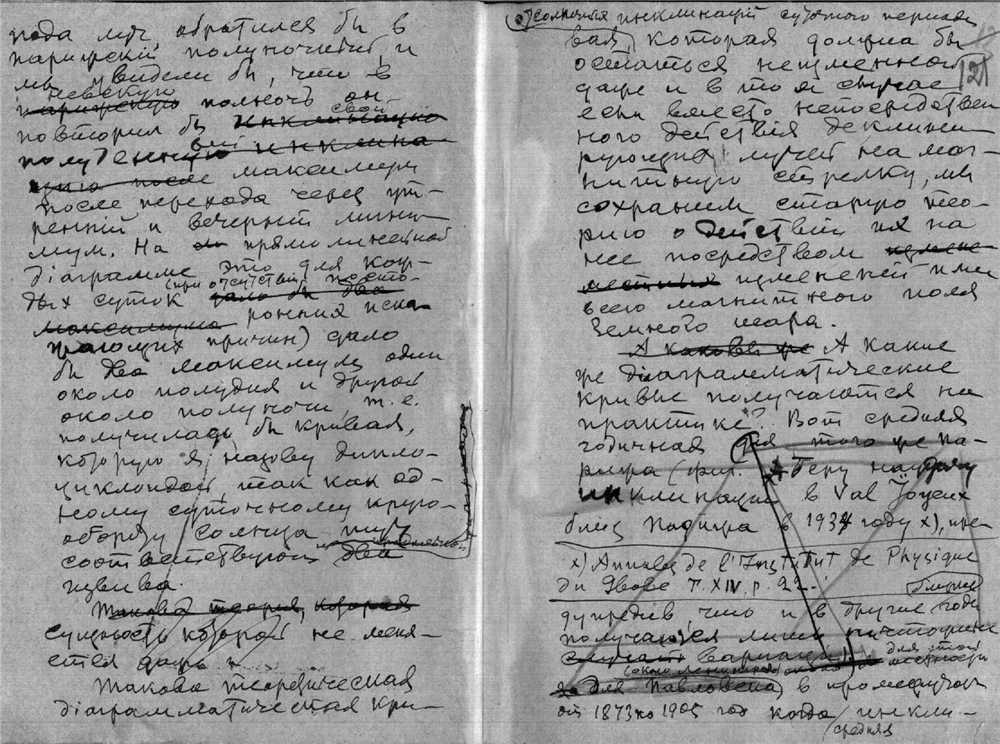 пода луч обратился бы в
парижскій полуночный и
мы увидели бы, что в
парижскую полночь он
повторил бы свой
максимум
после перехода через ут-
ренній и вечерній мини-
мум. На прямолинейной
діаграмме это для каж-
дых суток (при отсутствіи посто-
ронних иска-
жающих причин) дало
бы два максимума один
около полудня и другой
около полуночи, т. е.
получилась бы кривая,
которую я назову дипло-
циклоидой, так как од-
ному суточному круго-
обороту солнца
соответствуют два
изгиба.
Такова теория, которая
сущность которой не меня-
ется даже
Такова теоретическая
діаграмматическая кри-
солнечная инклинацій суточного періода
вая, которая должна бы
остаться неизменной
даже и в том случае
если вместо непосредствен
ного действія деклини
рующих лучей на маг-
нитную стрелку, мы
сохраним старую тео-
рию о действіи их на
нее посредством
изменений
всего магнитного поля
земного шара.
А каковы же А какие
же діаграмматические
кривые получаются на
практике? Вот средняя
годичная для того же Па-
рижа (фиг. Беру
инклинации в Val Joyeux
близ Парижа в 1934 году x), пре-
x) Annales de l'Institut de Physique
du Globe T. XIV, p. 92.
дупредив, что и в другие годы
получаются лишь
вариации
для этой
для Павловска) в промежуток
от 1873 по 1905 год когда инкли-
средняя
121